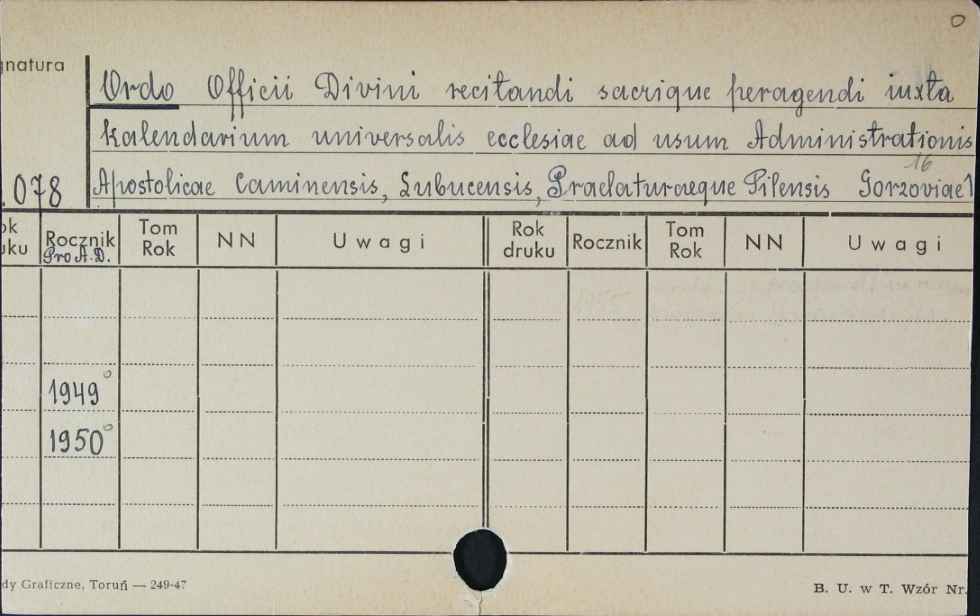 0
gnatura
Ordo Officii Divini recitandi sacrique peragendi iuxta
kalendarium universalis ecclesiae ad usum Administrationis
16
.078 Apostolicae Caminensis, Lubucensis, Praelaturaeque Pilensis Gorzoviae
ok
uku
Rocznik
Pro A.D.
Tom
Rok
NN
Uwagi
Rok
druku
Rocznik
Tom
Rok
NN
Uwagi
1949°
1950°
dy Graficzne, Toruń — 249-47
B. U. w T. Wzór Nr.